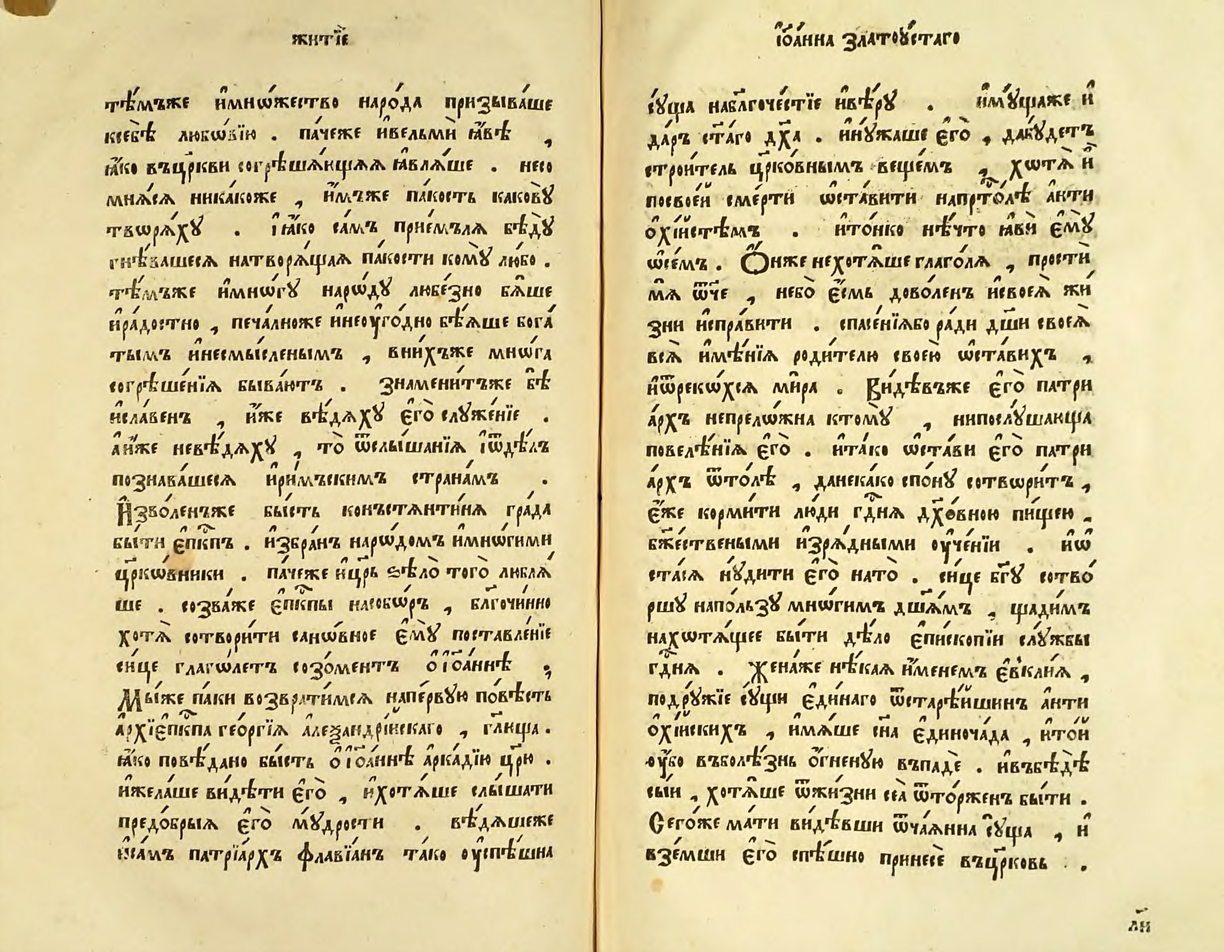 житїе
тѣ́мъже и҆мнѡ́жество наро́да призыва́ше
ксебѣ̀ любо́вїю . па́чеже и҆вельмѝ ꙗ҆́вѣ ,
ꙗ҆́ко въцр҃кви согрѣша́ющаѧ ꙗ҆влѧ́ше . несо
мнѧ́сѧ никако́же , и҆̀мъже па́кость какову̀
творѧ́хꙋ . ꙗ҆́ко са́мъ прїе́мълѧ бѣдꙋ̀
гнѣ́вашесѧ натворѧ́щаѧ па́кости комꙋ̀ любо .
тѣ́мъже и҆мнѡ́гꙋ наро́дꙋ любе́зно бѧ́ше
и҆ра́достно , печа́лноже и҆неоуго́дно бѣѧ́ше бога́
тымъ и҆несмы́сленымъ , вни́хъже мнѡ́га
согрѣше́нїѧ быва́ютъ . зна́менитъже бѣ̀
и҆сла́венъ , и҆̀же вѣ́дѧхꙋ є҆гѡ̀ слꙋже́нїе .
а҆и҆̀же невѣ́дѧхꙋ , то̀ ѿслы́шанїѧ и҆ѿдѣ́лъ
познава́шесѧ и҆ри́мъскимъ страна́мъ .
И҆зво́ленъже бы́сть коньстѧнти́нѧ гра́да
бы́ти є҆пк҃пъ . и҆збра́нъ наро́домъ и҆мнѡ́гими
цр҃ко́вники . па́чеже и҆цр҃ь ѕѣло̀ того̀ люблѧ́
ше . созва́же є҆пк҃пы насобо́ръ , бл҃гочи́нно
хотѧ̀ сотвори́ти сано́вное є҆мꙋ̀ поставле́нїе
си́це глаго́летъ созо́ментъ о҆і҆ѡа́ннѣ ;
Мы́же па́ки возврати́мсѧ напе́рвꙋю по́вѣсть
а҆рхїе҆пк҃па гео́ргїѧ а҆леѯандрі́йскаго , гл҃юща .
ꙗ҆́ко повѣ́дано бы́сть о҆і҆ѡа́ннѣ а҆рка́дїю цр҃ю .
и҆жела́ше ви́дѣти є҆го̀ , и҆хотѧ́ше слы́шати
предо́брыѧ є҆гѡ̀ мꙋ́дрости . вѣ́дѧшеже
и҆са́мъ патрїа́рхъ флавїа́нъ та́ко оуспѣ́шна
і҆ѡа́нна златоꙋ́стаго
сꙋ́ща набл҃гоче́стїе и҆вѣ́рꙋ . и҆мꙋ́щаже и҆
да́ръ ст҃а́го дх҃а . и҆нꙋ́жаше є҆го̀ , дабꙋ́детъ
строи́тель цр҃ко́внымъ веще́мъ , хотѧ̀ и҆̀
посвое́й сме́рти ѡ҆ста́вити напрⷭ҇то́лѣ а҆нти
о҆хі́йстѣмъ . и҆то́нко нѣ́что ꙗ҆вѝ є҆мꙋ̀
ѡ҆се́мъ . Ѻ҆́нже нехотѧ́ше глаго́лѧ , простѝ
мѧ̀ ѿ́че , небо̀ є҆́смь дово́ленъ и҆своеѧ̀ жи́
зни и҆спра́вити . спасе́нїѧбо ра́ди дш҃ѝ своеѧ̀
всѧ̀ и҆мѣ́нїѧ роди́телю свое́ю ѡ҆ста́вихъ ,
и҆ѿреко́хсѧ ми́ра . Ви́дѣвъже є҆го̀ патри
а҆́рхъ непрело́жна ктомꙋ̀ , нипослꙋ́шающа
повелѣ́нїѧ є҆гѡ̀ . и҆та́ко ѡ҆ста́ви є҆го̀ патри
а҆́рхъ ѿто́лѣ , данека́ко спо́нꙋ сотвори́тъ ,
є҆́же корми́ти лю́ди гдⷭ҇нѧ дх҃о́вною пи́щею .
бж҃е́ствеными и҆зрѧ́дными оуче́нїи . и҆ѡ
ста́сѧ нꙋ́дити є҆го̀ нато̀ . си́це бг҃ꙋ сотво́
ршꙋ напо́льзꙋ мнѡ́гимъ дш҃а́мъ , щадѧ́мъ
нахотѧ́щее бы́ти дѣ́ло є҆писко́пїи слꙋ́жбы
гдⷭ҇нѧ . Жена́же нѣ́каѧ и҆́менемъ є҆вкли́ѧ ,
подрꙋ́жїе сꙋ́щи є҆ди́наго ѿстарѣ́йшинъ а҆нти
о҆хі́йскихъ , и҆мѧ́ше сн҃а є҆диноча́да , и҆то́й
оу҆́бо въболѣ́знь о҆́гненꙋю въпадѐ . и҆въбѣдѣ̀
сы́й , хотѧ́ше ѿжи́зни сеѧ̀ ѿто́рженъ бы́ти .
Сего́же ма́ти ви́дѣвши ѿча́ѧнна сꙋ́ща , и҆
взе́мши є҆го̀ спѣ́шно принесѐ въцр҃ковь .
ли҃